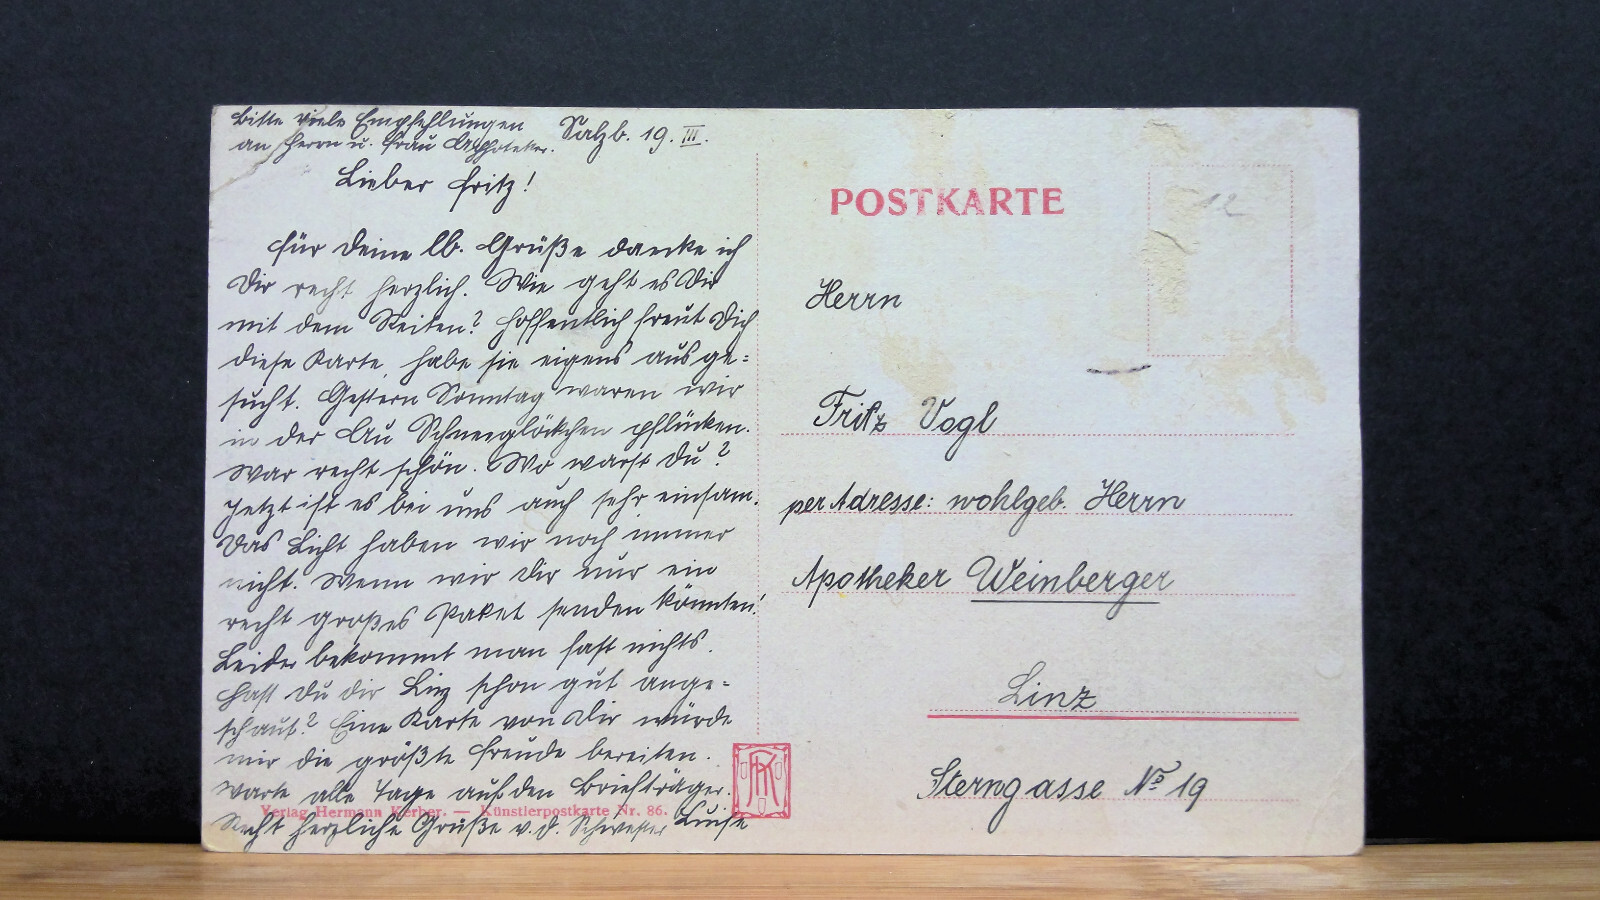 Bitte viele Empfehlungen
an Herrn u. Frau Apotheker.
Salzb. 19. III.
Lieber Fritz!
Für Deine lb. Grüße danke ich
Dir recht herzlich. Wie geht es Dir
mit dem Reiten? Hoffentlich freut Dich
diese Karte, habe sie eigens ausge=
sucht. Gestern Sonntag waren wir
in der Au Schneeglöckchen pflücken.
War recht schön. Wo warst Du?
Jetzt ist es bei uns auch sehr einsam.
Das Licht haben wir noch immer
nicht. Wenn wir Dir nur ein
recht großes Paket senden könnten!
Leider bekommt man fast nichts.
Hast Du dir Linz schon gut ange=
schaut? Eine Karte von Dir würde
mir die größte Freude bereiten.
Warte alle Tage auf den Briefträger.
Recht herzliche Grüße v. d. Schwester Luise
Verlag Hermann Kerber. — Künstlerpostkarte Nr. 86.
POSTKARTE
12
Herrn
Fritz Vogl
per Adresse: wohlgeb. Herrn
Apotheker Weinberger
Linz
Sterngasse No 19